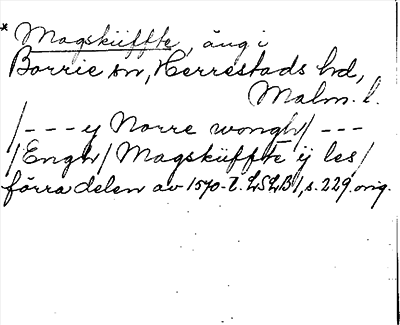 * Magsküffte, äng i
Borrie sn, Herrestads hd,
Malm. l.
/--- y Norre wongh/ ---
/Engh/ Magsküffte ÿ les/
förra delen av 1570-t. LSLB1, s. 229. orig.